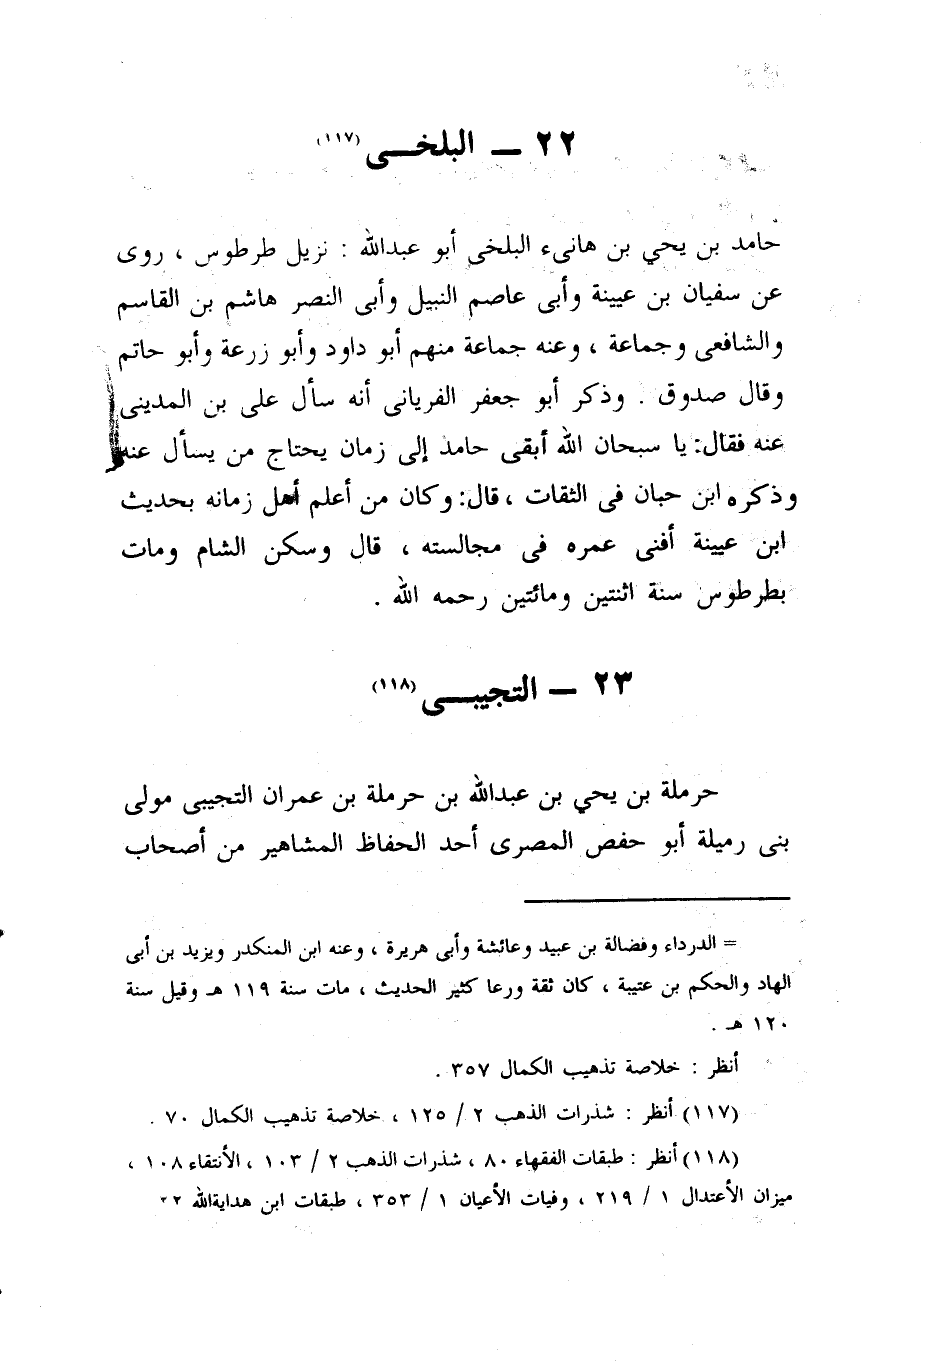 ٢٢ ــ البلخــى (١١٧)
حامد بن يحي بن هانىء البلخي أبو عبدالله : نزيل طرطوس ، روى
عن سفيان بن عيينة وأبى عاصم النبيل وأبى النصر هاشم بن القاسم
والشافعى وجماعة ، وعنه جماعة منهم أبو داود وأبو زرعة وأبو حاتم
وقال صدوق . وذكر أبو جعفر الفريانى أنه سأل على بن المدينى
عنه فقال: يا سبحان الله أبقى حامد إلى زمان يحتاج من يسأل عنه
وذكره ابن حبان فى الثقات ، قال: وكان من أعلم أهل زمانه بحديث
ابن عيينة أفنى عمره فى مجالسته ، قال وسكن الشام ومات
بطرطوس سنة اثنتين ومائتين رحمه الله .
٢٣ ــ التجيبــى (١١٨)
حرملة بن يحي بن عبدالله بن حرملة بن عمران التجيبى مولى
بنى رميلة أبو حفص المصرى أحد الحفاظ المشاهير من أصحاب
= الدرداء وفضالة بن عبيد وعائشة وأبى هريرة ، وعنه ابن المنكدر ويزيد بن أبى
الهاد والحكم بن عتيبة ، كان ثقة ورعا كثير الحديث ، مات سنة ١١٩ هـ وقيل سنة
١٢٠ هـ .
أنظر : خلاصة تذهيب الكمال ٣٥٧ .
(١١٧) أنظر : شذرات الذهب ٢ / ١٢٥ ، خلاصة تذهيب الكمال ٧٠ .
(١١٨) أنظر : طبقات الفقهاء ٨٠ ، شذرات الذهب ٢ / ١٠٣ ، الأنتقاء ١٠٨ ،
ميزان الأعتدال ١ / ٢١٩ ، وفيات الأعيان ١ / ٣٥٣ ، طبقات ابن هدايةالله